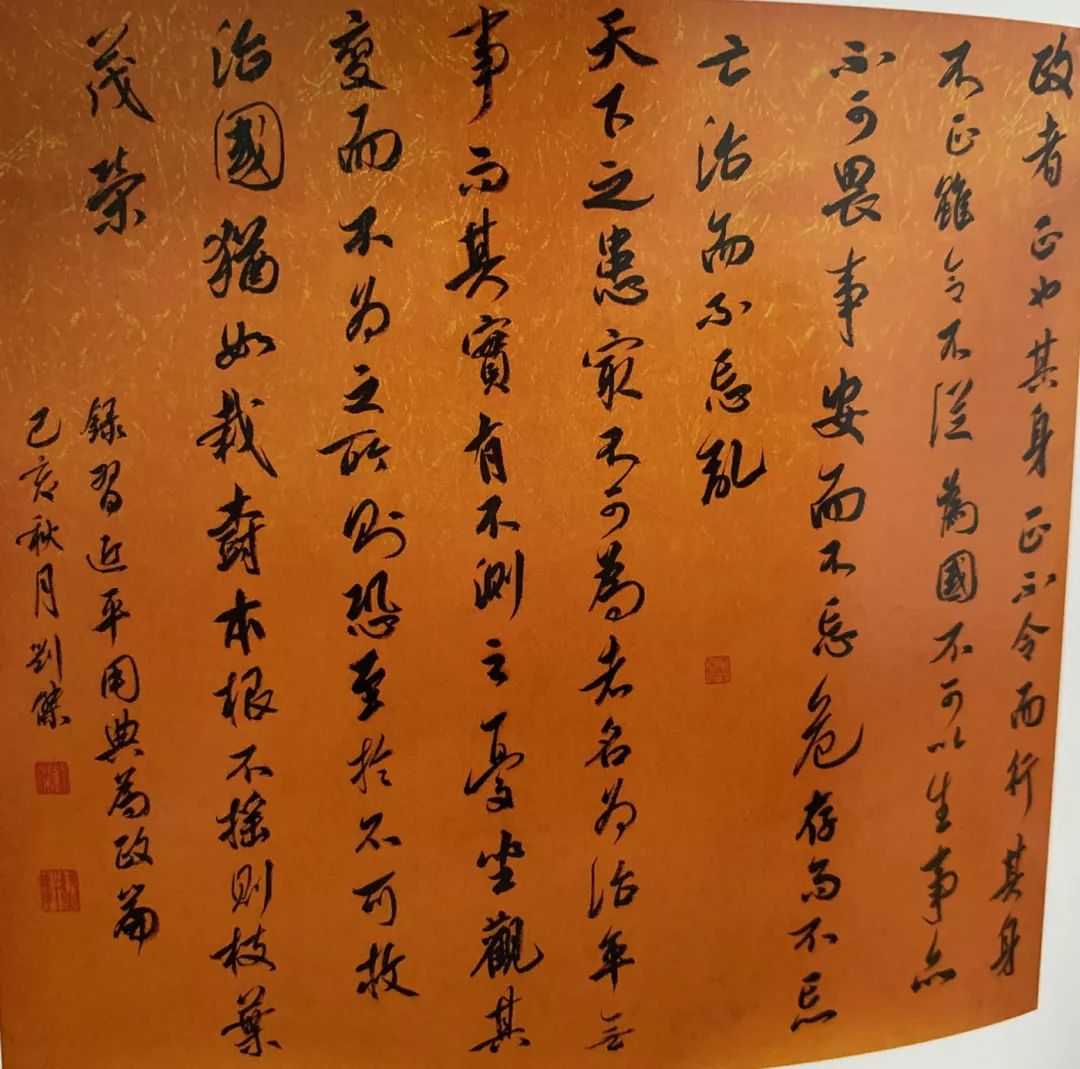 政者正也其身正不令而行其身
不正雖令不從為國不可以生事亦
不可畏事安而不忘危存而不忘
亡治而不忘亂
天下之患最不可為者名為治平無
事而其實有不測之憂坐觀其
變而不為之所則恐至於不可救
治國猶如栽樹本根不搖則枝葉
茂榮
錄習近平用典為政篇
己亥秋月劉傑